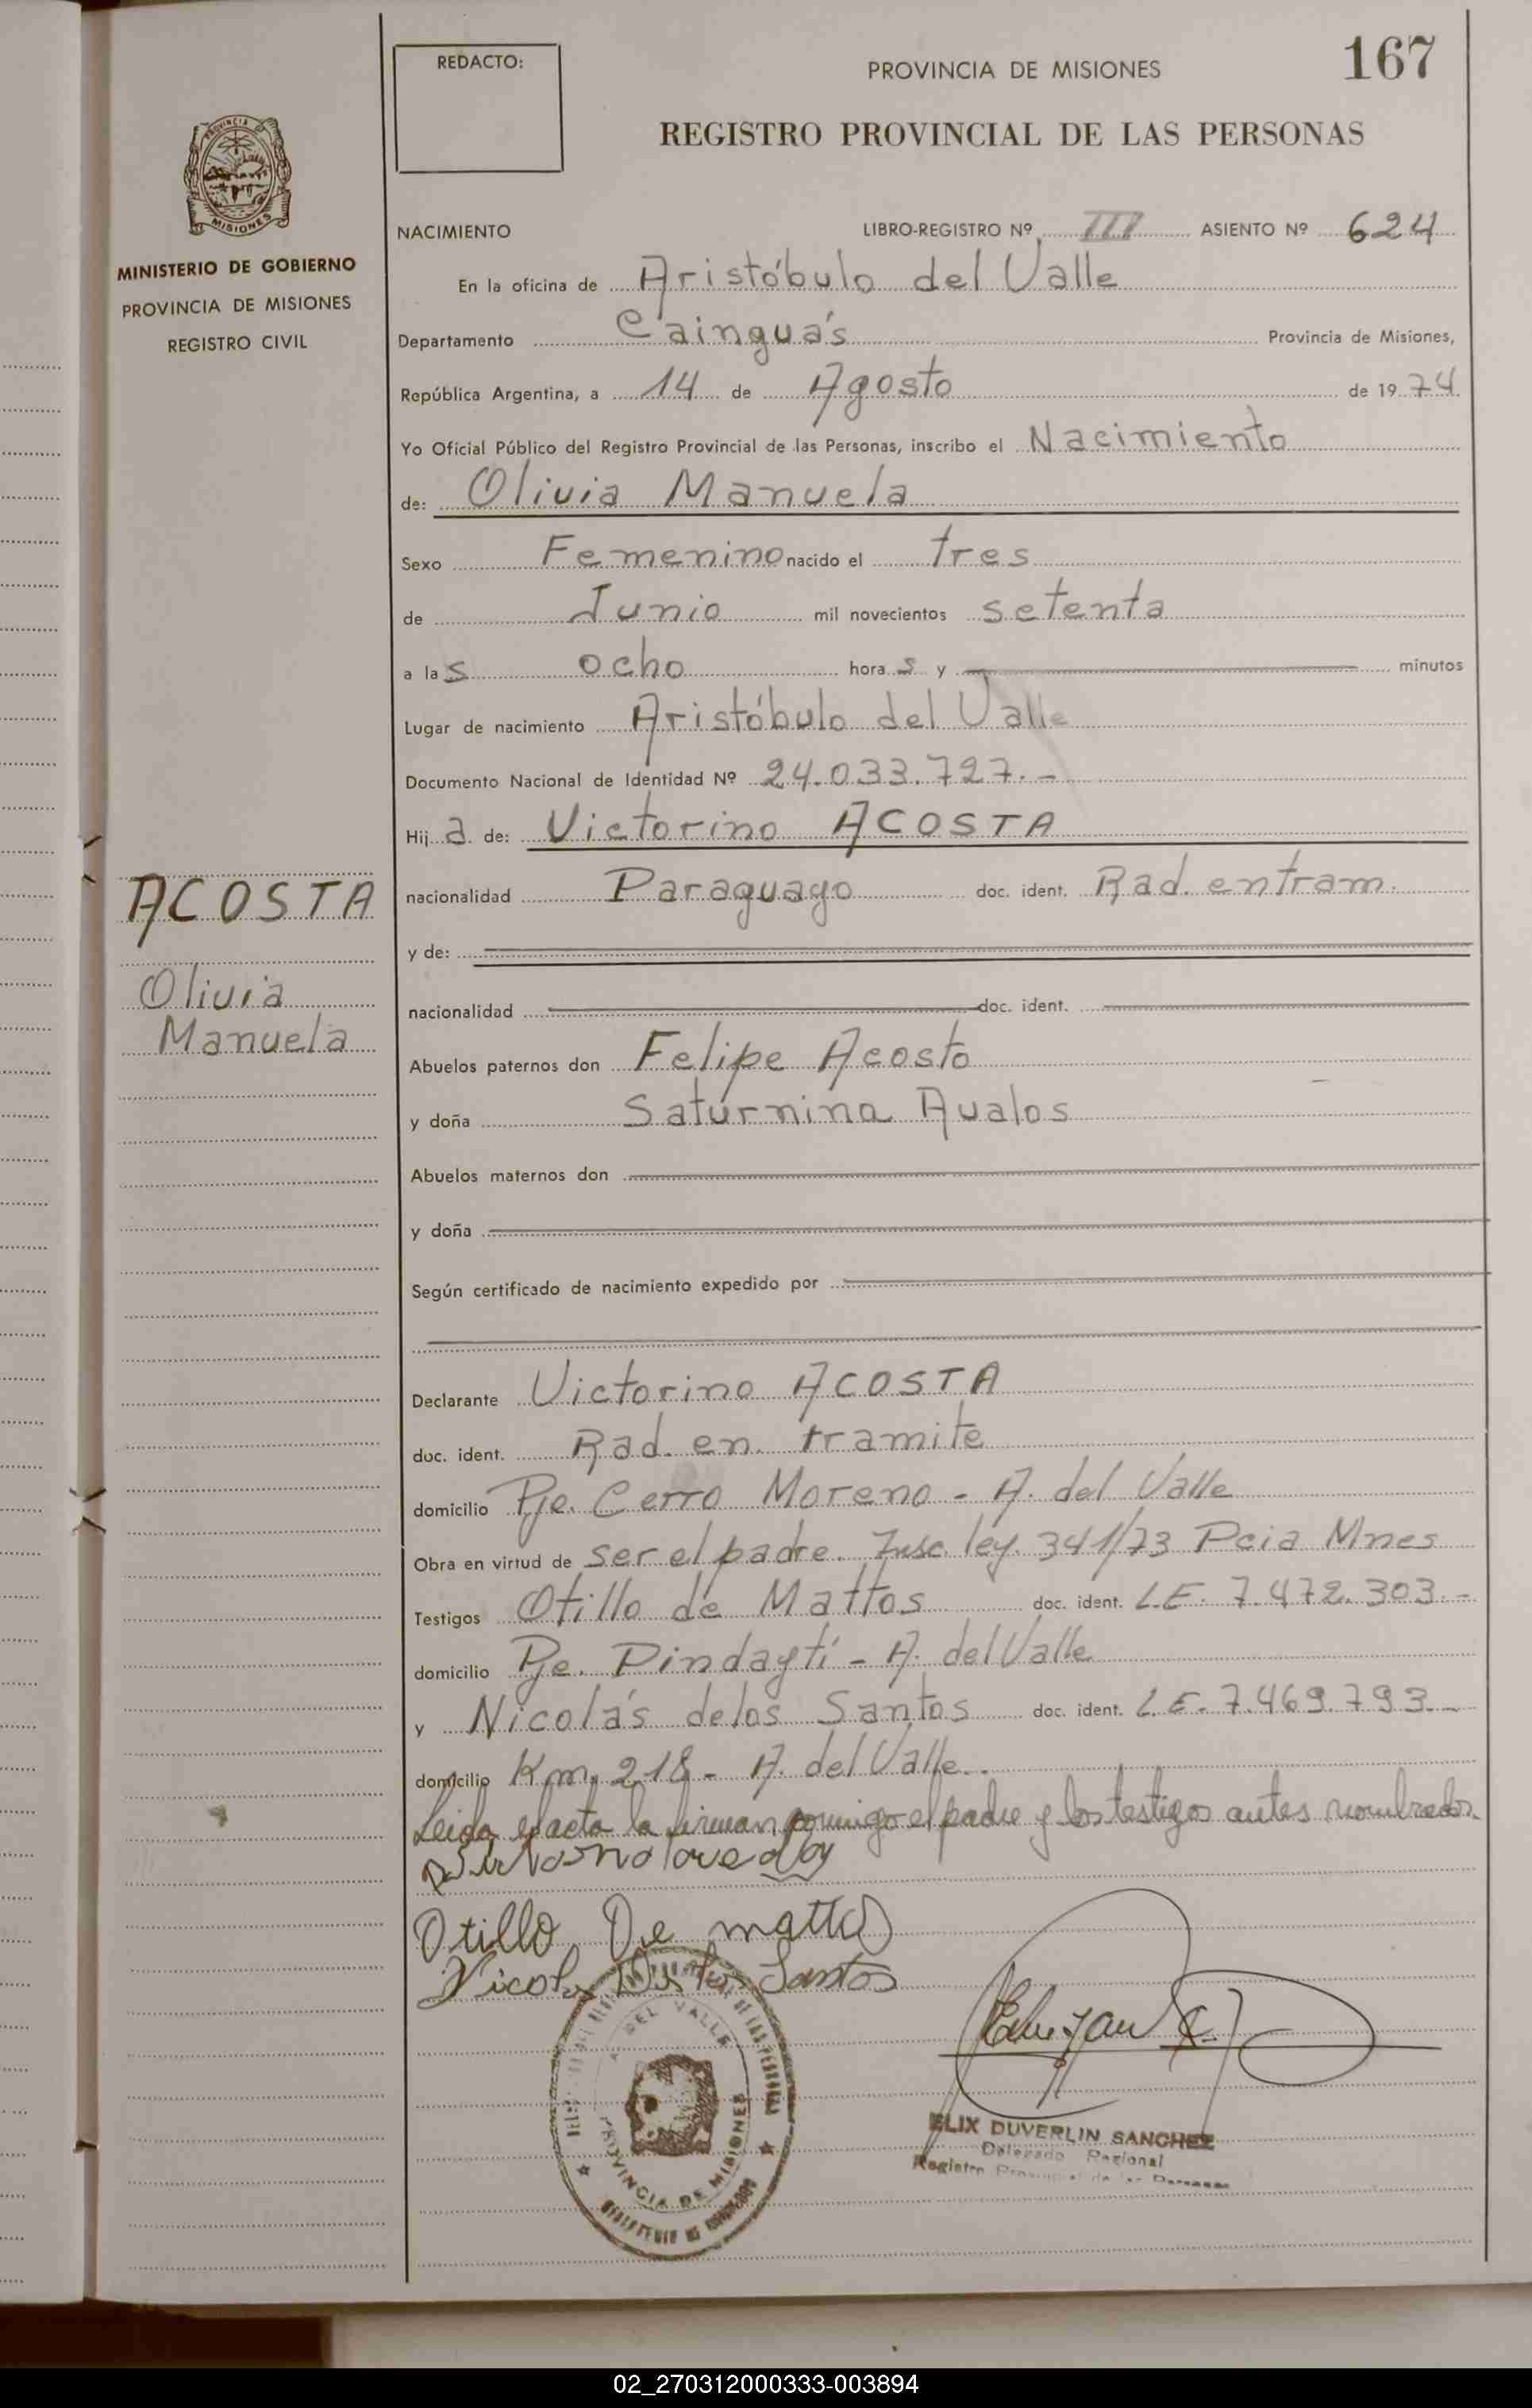 167
REDACTO:
PROVINCIA DE MISIONES
REGISTRO PROVINCIAL DE LAS PERSONAS
PROVINCIA
MISIONES
MINISTERIO DE GOBIERNO
PROVINCIA DE MISIONES
REGISTRO CIVIL
NACIMIENTO LIBRO-REGISTRO Nº III ASIENTO Nº 624
En la oficina de Aristóbulo del Valle
Departamento Cainguás Provincia de Misiones,
República Argentina, a 14 de Agosto de 1974
Yo Oficial Público del Registro Provincial de las Personas, inscribo el Nacimiento
de: Olivia Manuela
Sexo Femenino nacido el tres
de Junio mil novecientos setenta
a las ocho horas y minutos
Lugar de nacimiento Aristóbulo del Valle
Documento Nacional de Identidad Nº 24.033.727.-
Hija de: Victorino ACOSTA
nacionalidad Paraguayo doc. ident. Rad. en tram.
y de:
nacionalidad doc. ident.
Abuelos paternos don Felipe Acosto
y doña Saturnina Avalos
Abuelos maternos don
y doña
Según certificado de nacimiento expedido por
ACOSTA
Olivia
Manuela
Declarante Victorino ACOSTA
doc. ident. Rad. en tramite
domicilio Pje. Cerro Moreno - A. del Valle
Obra en virtud de ser el padre. Insc. ley. 341/73 Pcia Mnes
Testigos Otillo de Mattos doc. ident. L.E. 7.472.303.-
domicilio Pje. Pindaytí - A. del Valle
y Nicolás de los Santos doc. ident. L.E. 7.469.793.-
domicilio Km. 218 - A. del Valle.
Leida el acta la firman conmigo el padre y los testigos antes nombrados.
Otillo De mattos
Nicolas De los Santos
DEL VALLE
PROVINCIA DE MISIONES
ELIX DUVERLIN SANCHEZ
Delegado Regional
Registro Provincial de las Personas
02_270312000333-003894